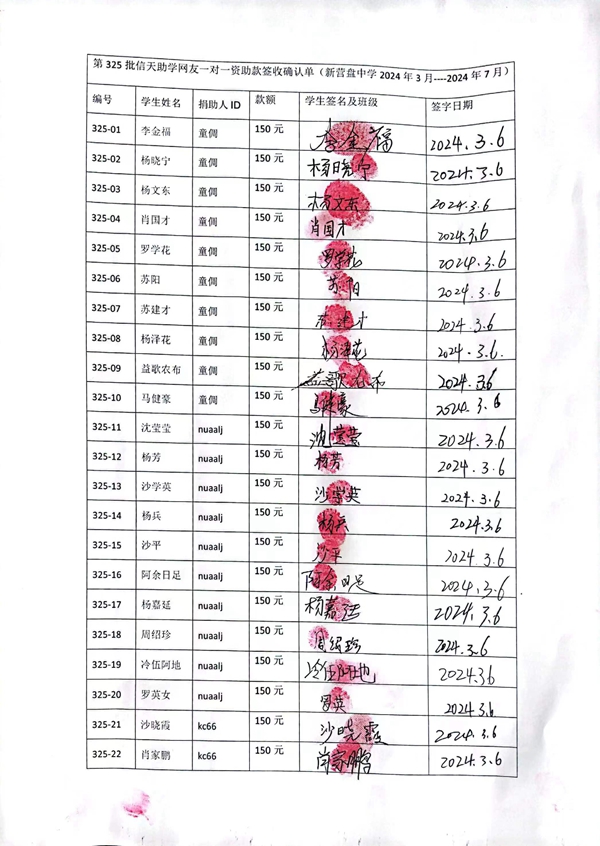 第 325 批信天助学网友一对一资助款签收确认单（新营盘中学 2024 年 3 月----2024 年 7 月）
编号 学生姓名 捐助人 ID 款额 学生签名及班级 签字日期
325-01 李金福 童倜 150 元 李金福 2024.3.6
325-02 杨晓宁 童倜 150 元 杨晓宁 2024.3.6
325-03 杨文东 童倜 150 元 杨文东 2024.3.6
325-04 肖国才 童倜 150 元 肖国才 2024.3.6
325-05 罗学花 童倜 150 元 罗学花 2024.3.6
325-06 苏阳 童倜 150 元 苏阳 2024.3.6
325-07 苏建才 童倜 150 元 苏建才 2024.3.6
325-08 杨泽花 童倜 150 元 杨泽花 2024.3.6
325-09 益歌农布 童倜 150 元 益歌农布 2024.3.6
325-10 马健豪 童倜 150 元 马健豪 2024.3.6
325-11 沈莹莹 nuaalj 150 元 沈莹莹 2024.3.6
325-12 杨芳 nuaalj 150 元 杨芳 2024.3.6
325-13 沙学英 nuaalj 150 元 沙学英 2024.3.6
325-14 杨兵 nuaalj 150 元 杨兵 2024.3.6
325-15 沙平 nuaalj 150 元 沙平 2024.3.6
325-16 阿余日足 nuaalj 150 元 阿余日足 2024.3.6
325-17 杨嘉延 nuaalj 150 元 杨嘉延 2024.3.6
325-18 周绍珍 nuaalj 150 元 周绍珍 2024.3.6
325-19 冷伍阿地 nuaalj 150 元 冷伍阿地 2024.3.6
325-20 罗英女 nuaalj 150 元 罗英 2024.3.6
325-21 沙晓霞 kc66 150 元 沙晓霞 2024.3.6
325-22 肖家鹏 kc66 150 元 肖家鹏 2024.3.6